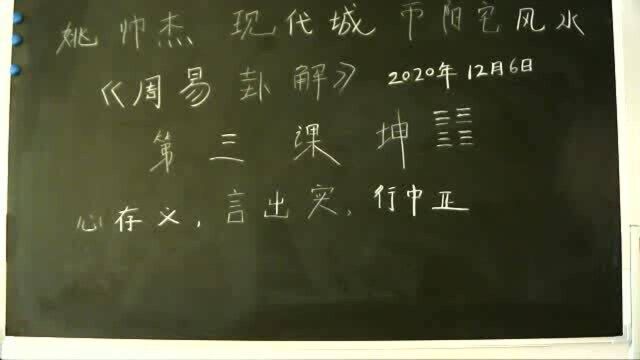 姚帅杰 现代城市阳宅风水
《周易卦解》 2020年12月6日
第三课 坤
心存义，言出实，行中正